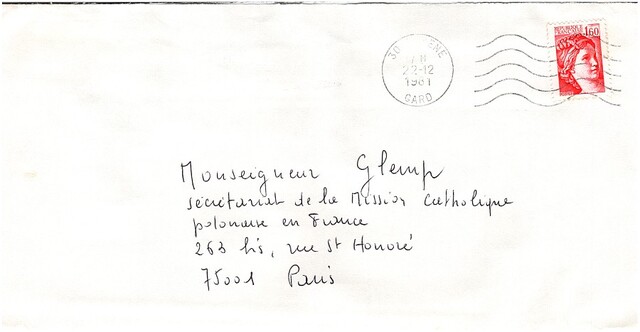 REPUBLIQUE
FRANCAISE
1,60
30 ENE
22-12
1981
GARD
Monseigneur Glemp
sécrétariat de la Mission Catholique
polonaise en France
263 bis, rue St Honoré
75001 Paris